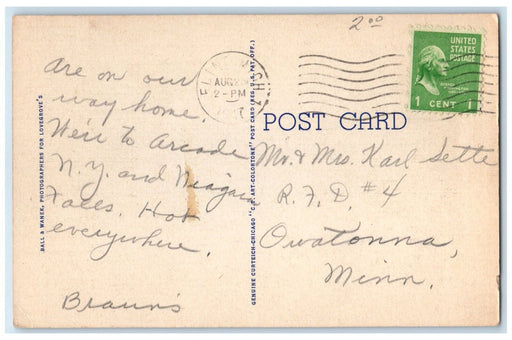 2.00
UNITED
STATES
POSTAGE
1 CENT 1
FLINT
AUG
2-PM
MICH
POST CARD
are on our
way home.
We're to Arcade
N.Y. and Niagara
Falls. Hot
everywhere.
Braun's
Mr. & Mrs. Karl Sette
R.F.D. #4
Owatonna,
Minn.
BALL & WANEK, PHOTOGRAPHERS FOR LOVEGROVE'S
GENUINE CURTEICH-CHICAGO "C.T. ART-COLORTONE" POST CARD (REG. U.S. PAT. OFF.)